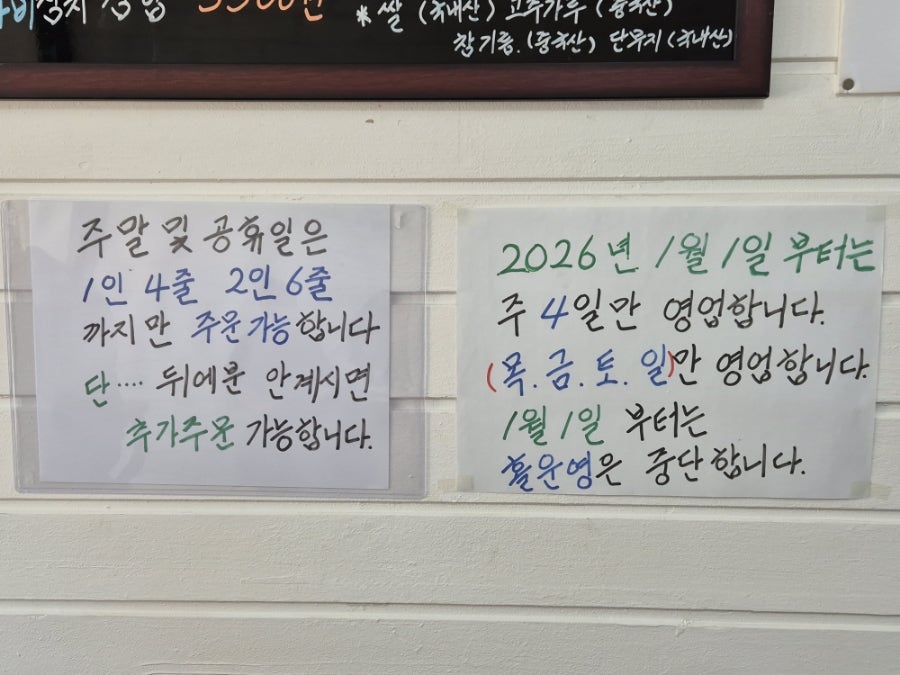 김치김밥 5500원
*쌀 (국내산) 고추가루 (중국산)
참기름.(중국산) 단무지(국내산)
주말 및 공휴일은
1인 4줄 2인 6줄
까지만 주문가능합니다
단···· 뒤에분 안계시면
추가주문 가능합니다.
2026년 1월 1일 부터는
주 4일만 영업합니다.
(목.금.토.일)만 영업합니다.
1월 1일 부터는
홀운영은 중단합니다.